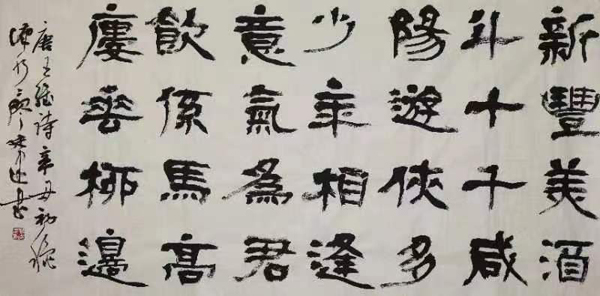 新豐美酒
斗十千咸
陽遊俠多
少年相逢
意氣為君
飲係馬高
廔垂柳邊
唐王維詩辛丑初
書